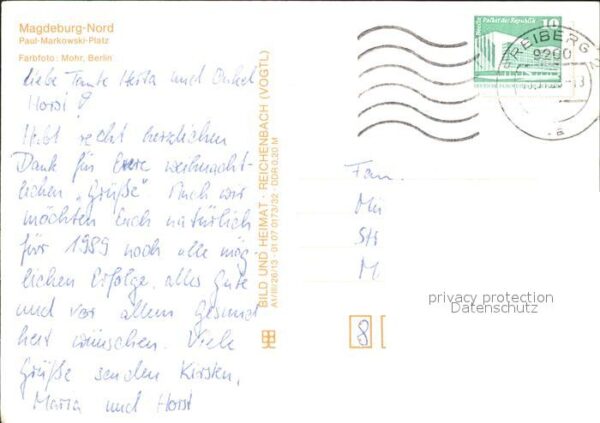 Magdeburg-Nord
Paul-Markowski-Platz
Farbfoto: Mohr, Berlin
Liebe Tante Herta und Onkel
Horst!
Habt recht herzlichen
Dank für Eure weihnacht-
lichen „Grüße“ Auch wir
möchten Euch natürlich
für 1989 noch alle mög
lichen Erfolge, alles Gute
und vor allem Gesund
heit wünschen. Viele
Grüße senden Kirsten,
Maria und Horst
BILD UND HEIMAT · REICHENBACH (VOGTL)
A1/III/26/13 · 01 07 0173/32 · DDR 0,20 M
10
Berlin Palast der Republik
FREIBERG 2
9200
a
Fam.
Mü
Str
M
8
privacy protection
Datenschutz